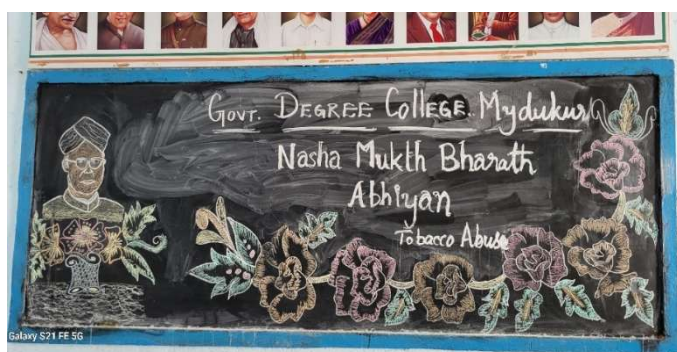 Govt. Degree College. Mydukur
Nasha Mukth Bharath
Abhiyan
Tobacco Abuse
Galaxy S21 FE 5G